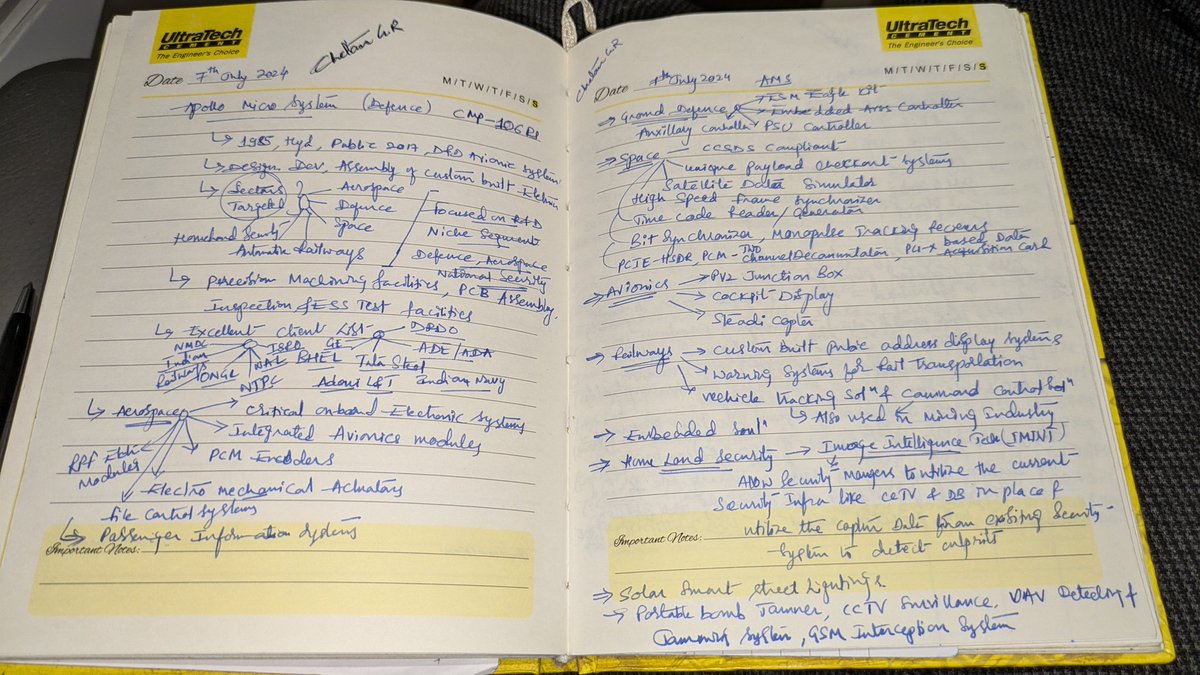 UltraTech
CEMENT
The Engineer's Choice
Chettan G.R
Date 7th July 2024
M/T/W/T/F/S/S
Apollo Micro System (Defence) CMP-106
↳ 1985, Hyd, Public 2017, Avionic System
↳ Design. Dev, Assembly of custom built
↳ Sectors Targeted
Aerospace
Defence
Space
Homeland Security
Railways
Focused on R&D
Niche Segment
Defence, Aerospace
National Security
↳ percision Machining facilities, PCB Assembly.
Inspection & ESS Test facilities
↳ Excellent Client List
DRDO
ADE/ADA
NMDC
Indian Railways
ONGC
NAL
ISRO
GE
BHEL
Tata Steel
NTPC
Adani L&T Indian Navy
↳ Aerospace
Critical onboard Electronic Systems
Integrated Avionics modules
PCM-Encoders
Modules
Electro mechanical Actuators
file control systems
↳ Passenger Information Systems
Important Notes:
UltraTech
CEMENT
The Engineer's Choice
Chettan G.R
Date 7th July 2024 AMS
M/T/W/T/F/S/S
⇒ Ground Defence
Embedded Controller
Auxillary Controller PSU Controller
⇒ Space - CCSDS Compliant
unique payload Checkout Systems
Satellite Data Simulator
High Speed Frame Synchronizer
Time Code Reader/Generator
Bit Synchronizer, Monopulse Tracking
PCIE-HSDR PCM-Two Channel Decommutator, PCI-X based Data Acquisition Card
⇒ Avionics
→ PV2 Junction Box
→ Cockpit Display
→ Steadi Copter
⇒ Railways → Custom built pubic address display systems
→ Warning Systems for Rail Transportation
→ Vechicle tracking Solⁿ & Command Control Solⁿ
↳ Also used in Mining Industry
→ Embedded Soulⁿ
⇒ Home Land Security → Image Intelligence Tech (IMINT)
Allow Security Mangers to utilize the current
Security Infra like CCTV & DB in place &
utilize the captur Data from an existing Security
-System to detect culprits
Important Notes:
⇒ Solar Smart Street Lightings
→ Portable bomb Jammer, CCTV Survillance, UAV Detecting &
Jamming System, GSM Interception System